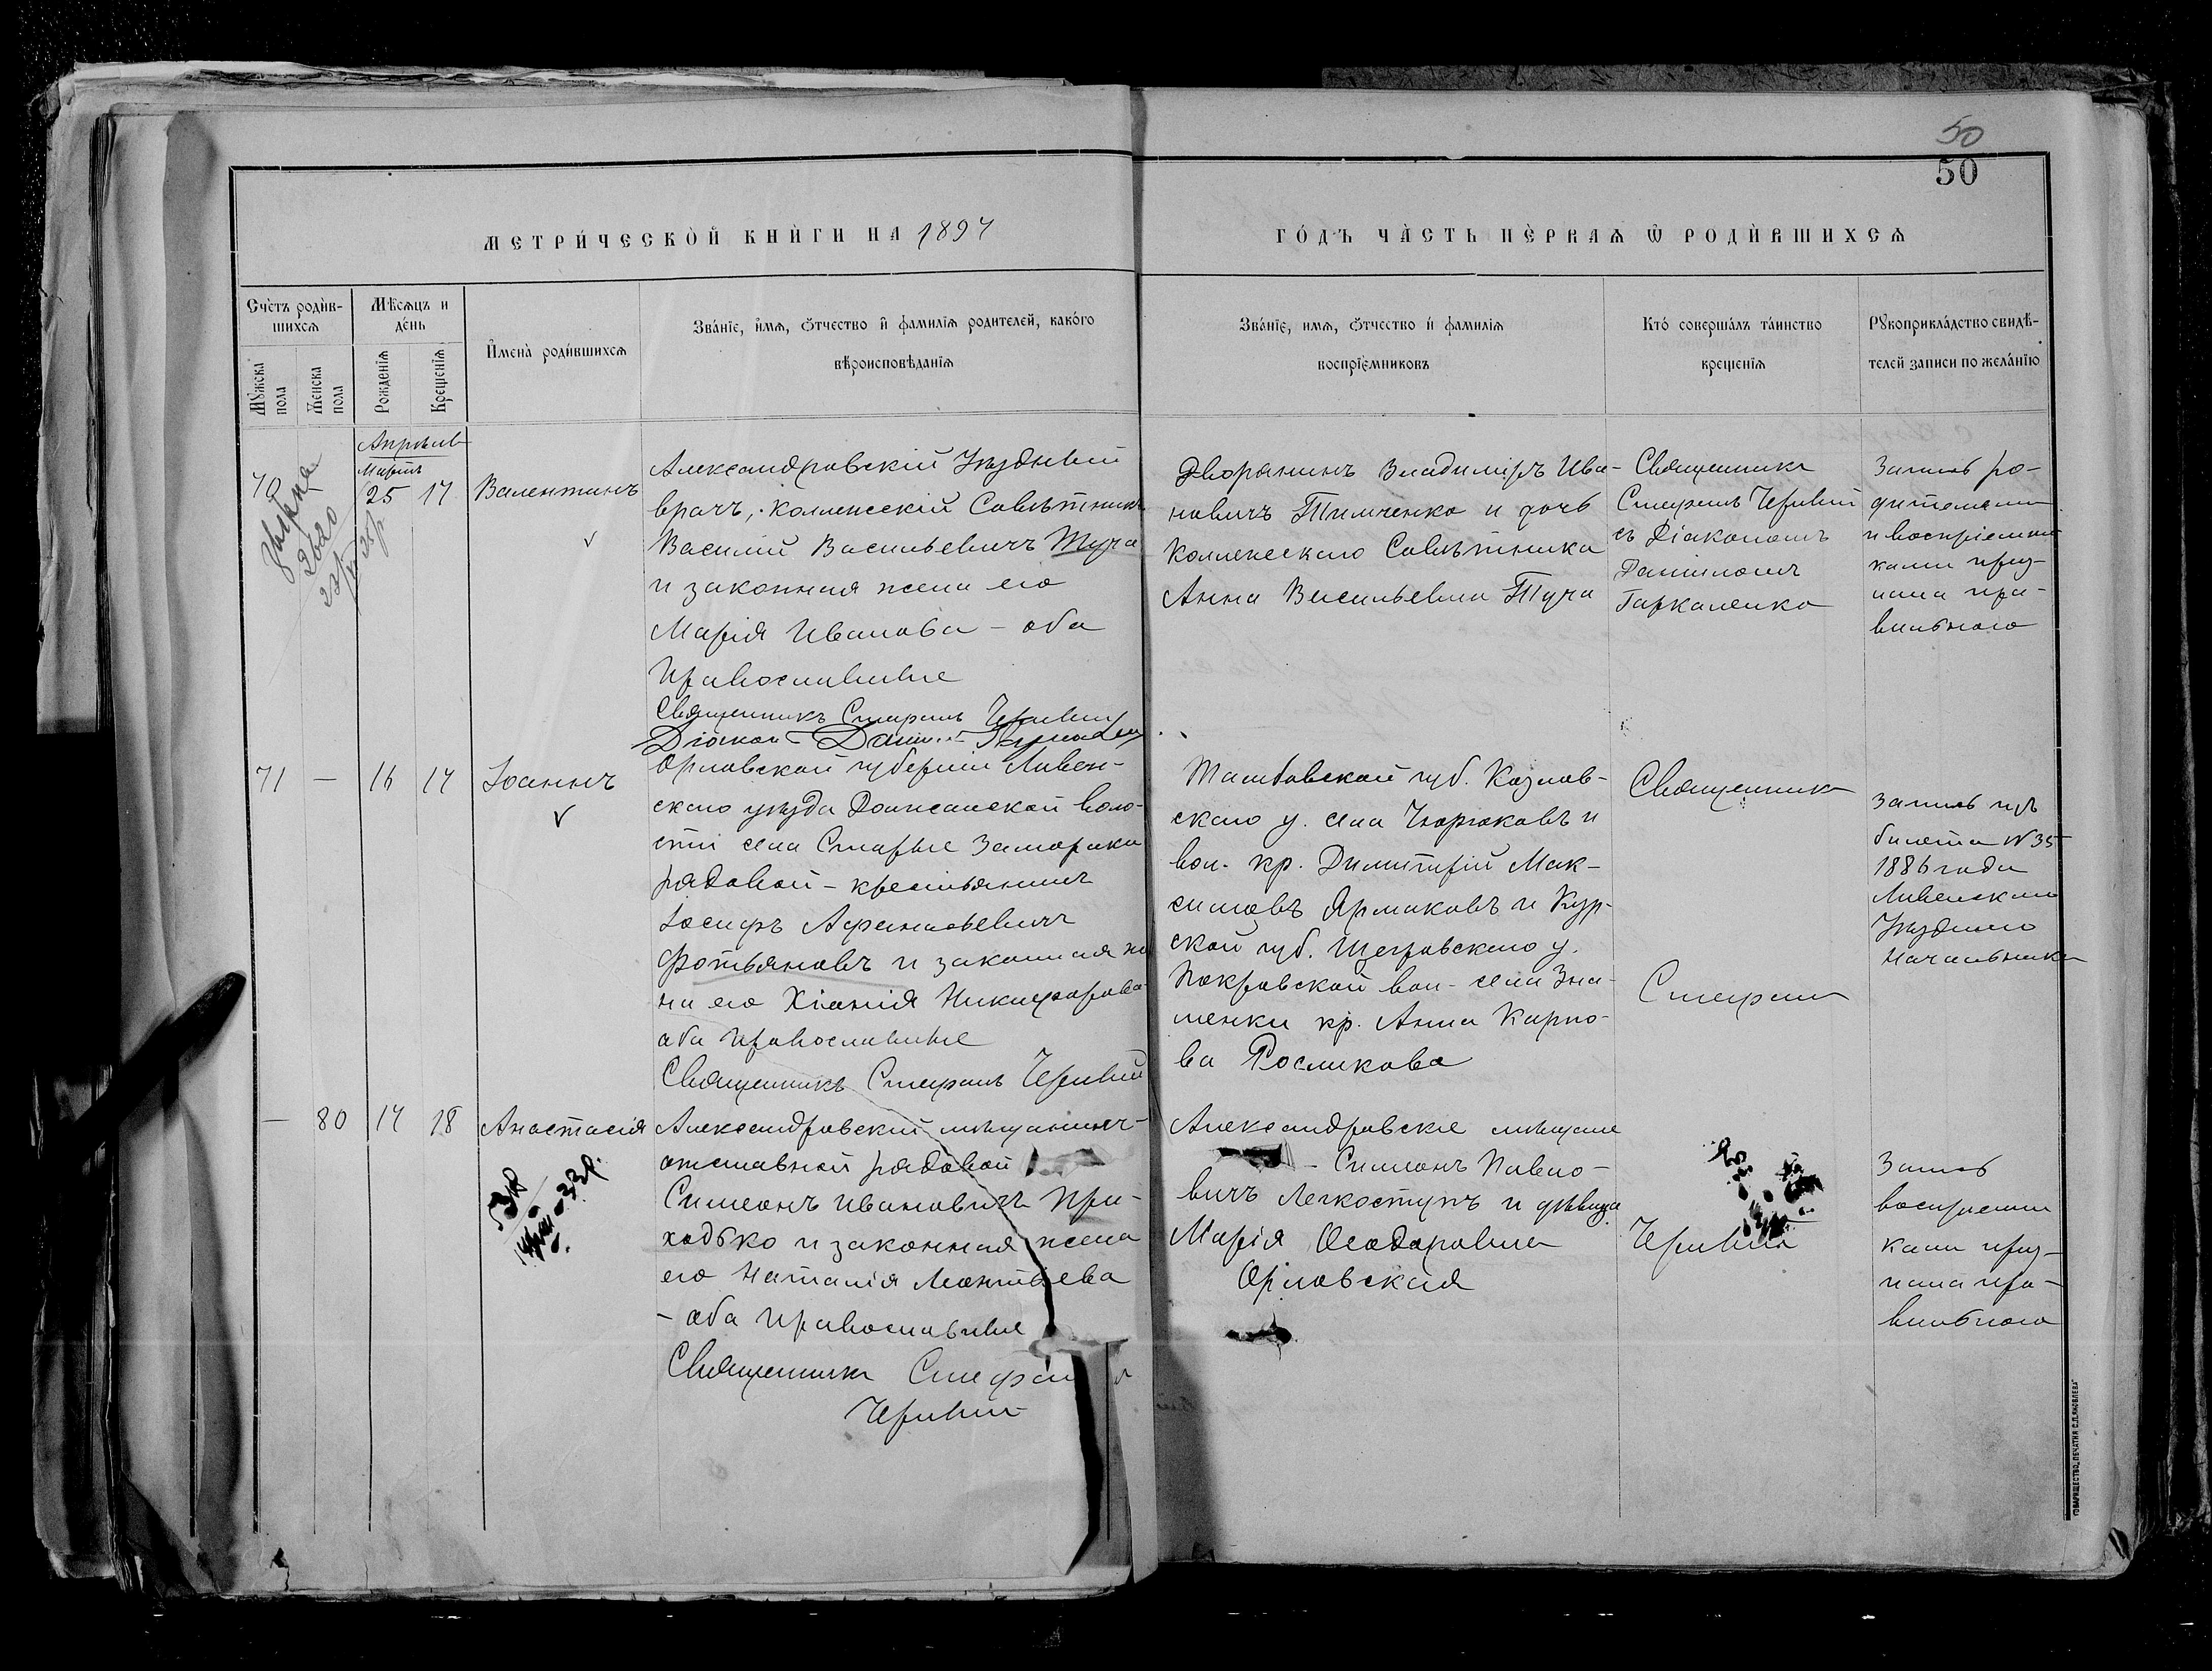 50
50
МЕТРИ́ЧЕСКОЙ КНИ́ГИ НА 1897
ГО́ДЪ ЧА́СТЬ ПЕ́РВАѦ Ѿ РОДИ́ВШИХСѦ
Сче́тъ роди́в-
шихсѧ
Мѣ́сѧцъ и
де́нь
Мꙋжеска
пола
Женска
пола
Рожденїѧ
Крещенїѧ
И҆мена̀ роди́вшихсѧ
Зва́нїе, и҆мѧ, ѻ҆тчество и҆ фамилїѧ родителей, како́го
вѣроисповѣданїѧ
Зва́нїе, имѧ, ѻ҆тчество и҆ фамилїѧ
воспрїе́мниковъ
Кто̀ соверша́лъ та́инство
крещенїѧ
Рꙋкоприкла́дство свидѣ́-
телей записи по жела́нїю
Апрѣль
Мартъ
70
25 17
Валентинъ
Александровскій Уѣздный
врачъ, Коллежскій Совѣтникъ
Василій Васильевичъ Туча
и законная жена его
Марія Иванова - оба
православные
Священникъ Стефанъ
Діаконъ Даніилъ
Дворянинъ Владиміръ Ива-
новичъ Тимченко и дочь
Коллежскаго Совѣтника
Анна Васильевна Туча
Священникъ
Стефанъ
съ Діакономъ
Данииломъ
Гаркаленко
Запись ро-
дителями
и воспріемни-
ками приз-
нана пра-
вильною
справка
2620
71 — 16 17 Іоаннъ
Орловской губерніи Ливен-
скаго уѣзда Должанской воло-
сти села Старые
рядовой - крестьянинъ
Іосифъ Афанасьевичъ
Фотьяновъ и законная же
на его Хіонія Никифорова
оба православные
Священникъ Стефанъ
Тамбовской губ. Козлов-
скаго у. села и
вол. кр. Димитрій Мак-
симовъ Ярмаковъ и Кур-
ской губ. Щегровскаго у.
Покровской вол - села Зна-
менки кр. Анна Карпо-
ва Росликова
Священникъ
Стефанъ
Запись изъ
билета №35
1886 года
Ливенскаго
Уѣзднаго
Начальника
— 80 17 18 Анастасія
Александровскій мѣщанинъ-
отставной рядовой
Симеонъ Ивановичъ При-
ходько и законная жена
его Наталія Леонтьева
- оба православные
Священникъ Стефанъ
Александровскіе мѣщане
- Симеонъ Павло-
вичъ Легкоступъ и дѣвица
Марія Ѳеодоровна
Орловская
Запись
воспріемни
ками приз-
нана пра-
вильною
ТОВАРИЩЕСТВО „ПЕЧАТНЯ С.П.ЯКОВЛЕВА"